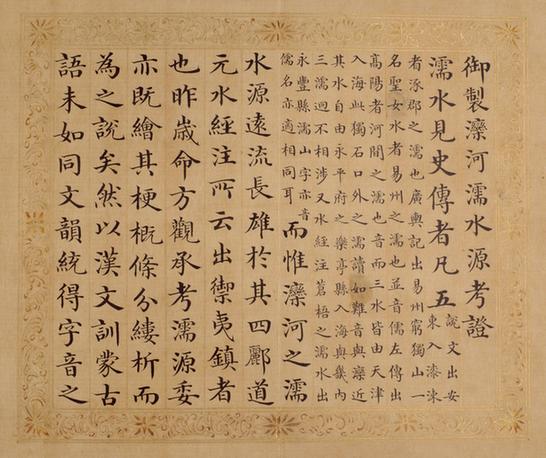 御製灤河濡水源考證
濡水見史傳者凡五
說文出安
東入漆涑
者涿郡之濡也廣輿記出易州窮獨山一
名聖女水者易州之濡也並音儒左傳出
高陽者河間之濡也音而三水皆由天津
入海此獨石口外之濡讀如難音與灤近
其水自由永平府之樂亭縣入海與畿內
三濡迴不相涉又水經注蒼梧之濡水出
永豐縣濡山字亦音
儒名亦適相同耳
而惟灤河之濡
水源遠流長雄於其四酈道
元水經注所云出禦夷鎮者
也昨歲命方觀承考濡源委
亦既繪其梗概條分縷析而
為之說矣然以漢文訓蒙古
語未如同文韻統得字音之